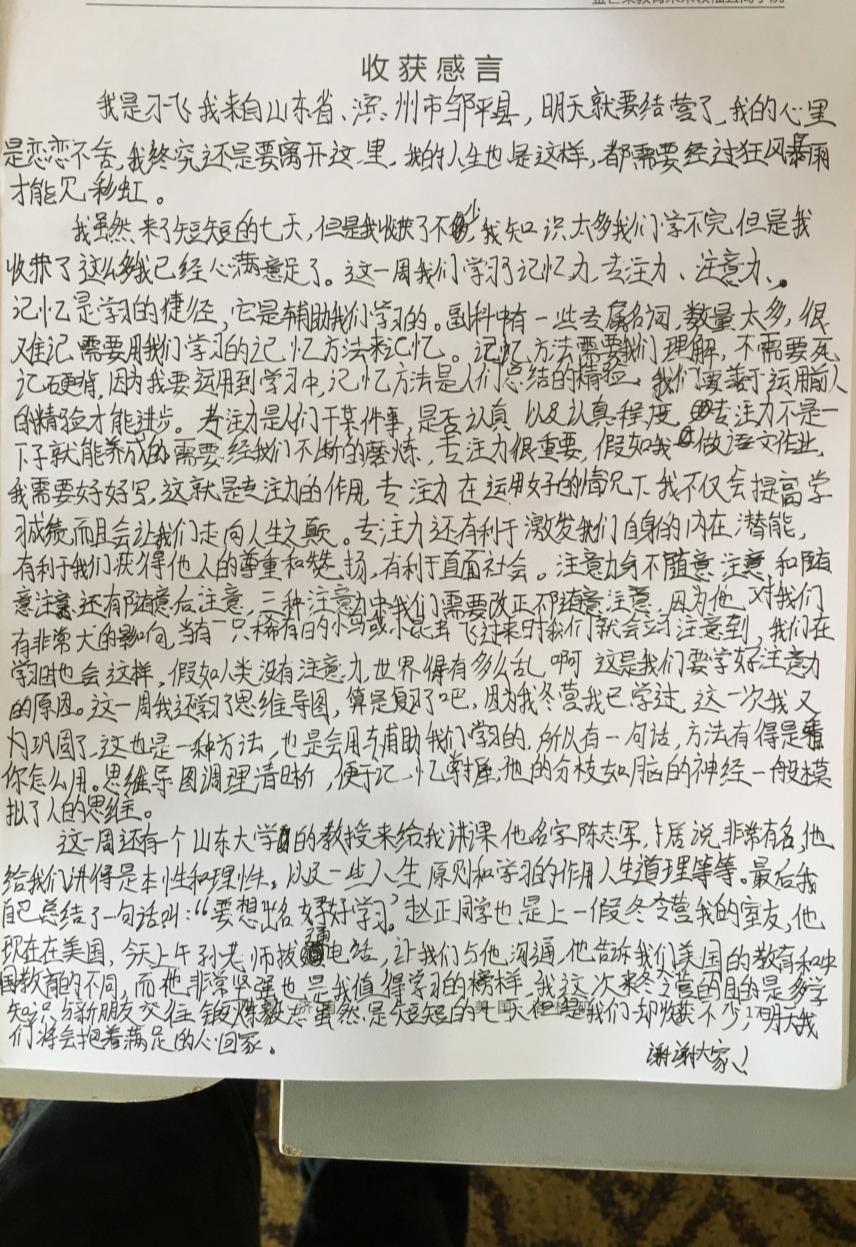 收获感言
我是刁飞我来自山东省、滨州市邹平县，明天就要结营了，我的心里
是恋恋不舍，我终究还是要离开这里，我的人生也是这样，都需要经过狂风暴雨
才能见彩虹。
我虽然来了短短的七天，但是我收获了不少，我知识太多我们学不完，但是我
收获了这么多我已经心满意足了。这一周我们学习了记忆力、专注力、注意力、
记忆是学习的捷径，它是辅助我们学习的。副科中有一些专属名词，数量太多，很
难记需要用我们学习的记忆方法来记忆。记忆方法需要我们理解，不需要死
记硬背，因为我要运用到学习中，记忆方法是人们总结的精验，我们要善于运用前人
的精验才能进步。专注力是人们干某件事，是否认真以及认真程度，专注力不是一
下子就能养成的需要经我们不断的磨炼，专注力很重要，假如我做语文作业，
我需要好好写，这就是专注力的作用，专注力在运用好的情况下我不仅会提高学
习成绩，而且会让我们走向人生之巅。专注力还有利于激发我们自身的内在潜能，
有利于我们获得他人的尊重和赞扬，有利于直面社会。注意力分不随意注意，和随
意注意还有随意后注意，三种注意力中我们需要改正不随意注意，因为他对我们
有非常大的影响，当有一只稀有的小鸟或小昆虫飞过来时我们就会立刻注意到，我们在
学习时也会这样，假如人类没有注意力，世界得有多么乱啊 这是我们要学好注意力
的原因。这一周我还学习了思维导图，算是复习了吧，因为我冬营我已学过，这一次我又
巩固了，这也是一种方法，也是会用于辅助我们学习的，所以有一句话，方法有得是看
你怎么用。思维导图调理清晰，便于记忆掌握，他的分枝如脑的神经一般模
拟了人的思维。
这一周还有一个山东大学的教授来给我讲课他名字陈志军，居说非常有名，他
给我们讲得是本性和理性，以及一些人生原则和学习的作用人生道理等等。最后我
自己总结了一句话叫："要想出名好好学习。"赵正同学也是上一假冬令营我的室友，他
现在在美国，今天上午孙老师拨通电话，让我们与他沟通，他告诉我们美国的教育和中
国教育的不同，而他非常坚强也是我值得学习的榜样，我这次来冬令营的目的是多学
知识，与新朋友交往，锻炼毅志虽然是短短的七天但是我们却收获不少，明天我
们将会抱着满足的心回家。
谢谢大家！